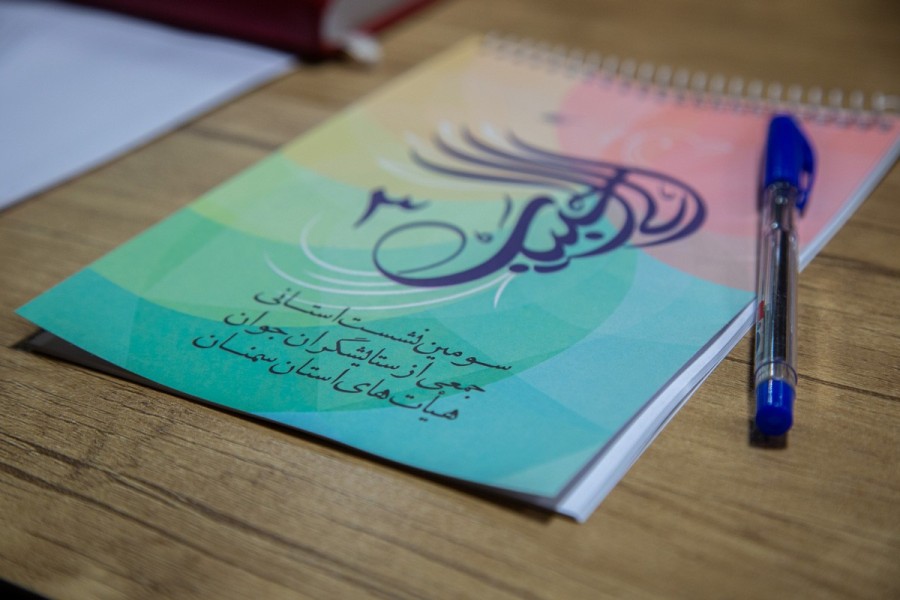 ۳
سومین نشست استانی
جمعی از ستایشگران جوان
هیأت‌های استان سمنان